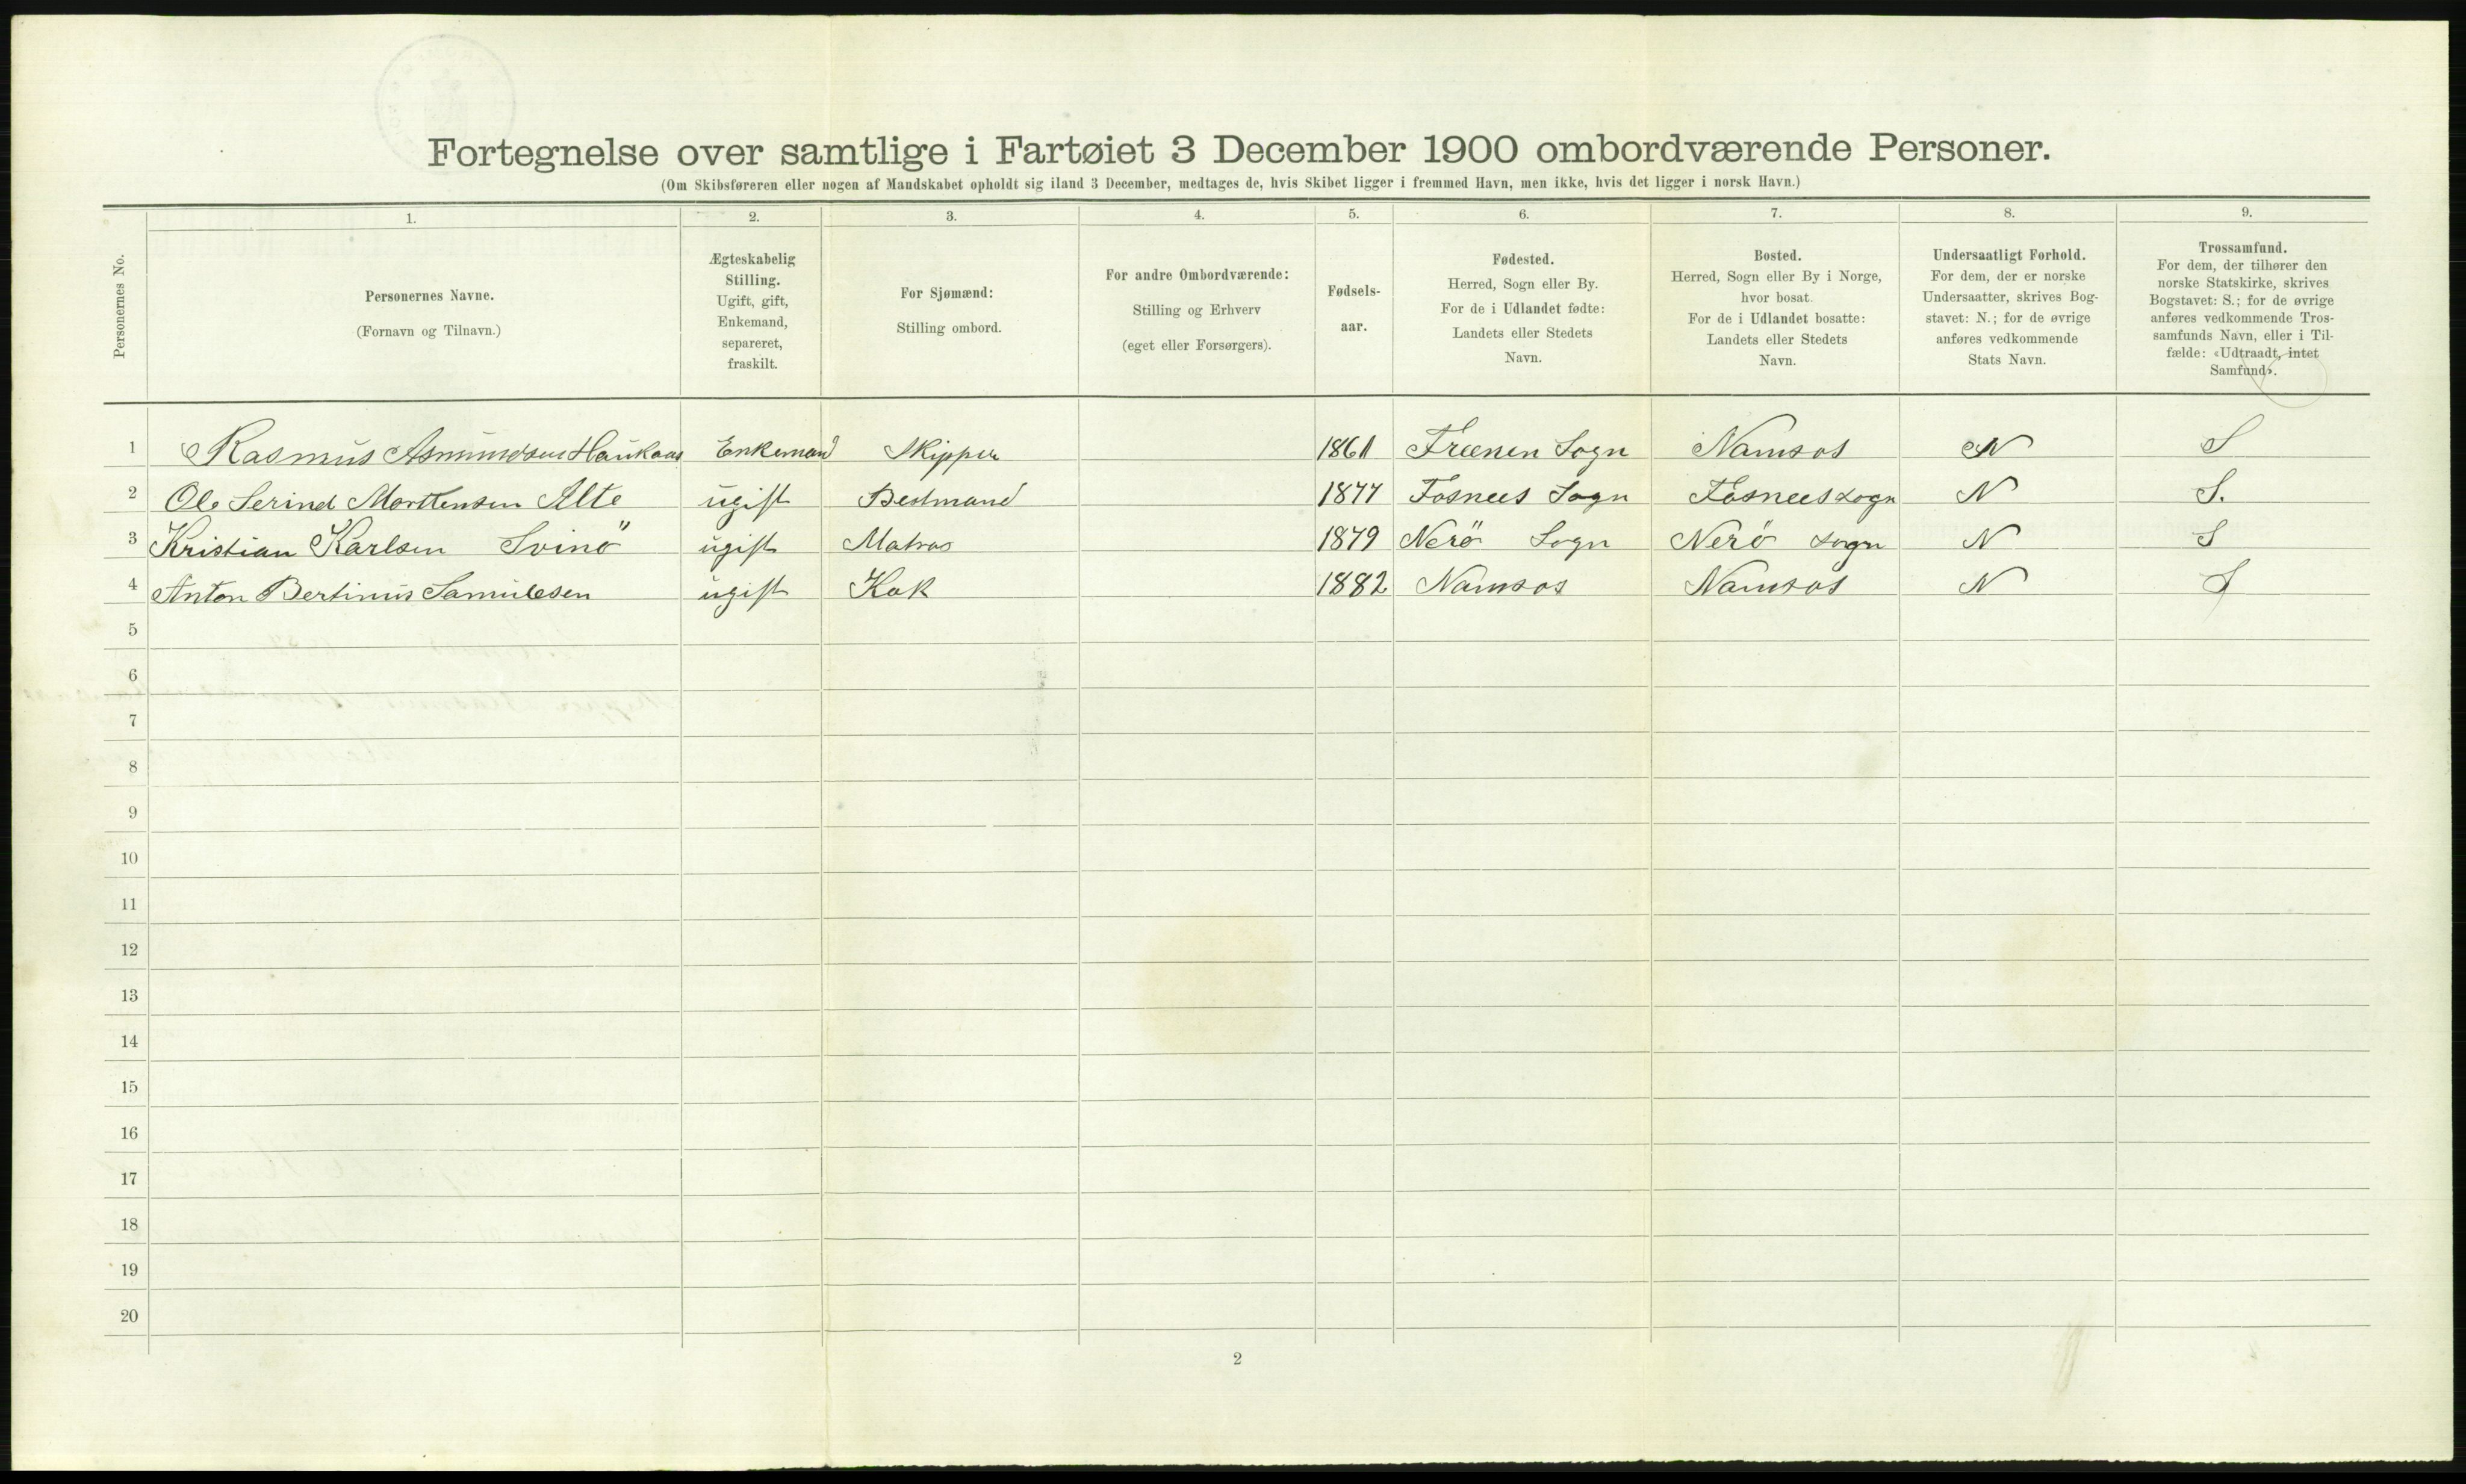 Fortegnelse over samtlige i Fartøiet 3 December 1900 ombordværende Personer.
(Om Skibsføreren eller nogen af Mandskabet opholdt sig iland 3 December, medtages de, hvis Skibet ligger i fremmed Havn, men ikke, hvis det ligger i norsk Havn.)
1. 2. 3. 4. 5. 6. 7. 8. 9.
Personernes No.
Personernes Navne.
(Fornavn og Tilnavn.)
Ægteskabelig
Stilling.
Ugift, gift,
Enkemand,
separeret,
fraskilt.
For Sjømænd:
Stilling ombord.
For andre Ombordværende:
Stilling og Erhverv
(eget eller Forsørgers).
Fødsels-
aar.
Fødested.
Herred, Sogn eller By.
For de i Udlandet fødte:
Landets eller Stedets
Navn.
Bosted.
Herred, Sogn eller By i Norge,
hvor bosat.
For de i Udlandet bosatte:
Landets eller Stedets
Navn.
Undersaatligt Forhold.
For dem, der er norske
Undersaatter, skrives Bog-
stavet: N.; for de øvrige
anføres vedkommende
Stats Navn.
Trossamfund.
For dem, der tilhører den
norske Statskirke, skrives
Bogstavet: S.; for de øvrige
anføres vedkommende Tros-
samfunds Navn, eller i Til-
fælde: «Udtraadt, intet
Samfund».
1 Rasmus Asmundsen Haukaas Enkemand Skipper 1861 Frænen Sogn Namsos N S
2 Ole Serind Morttensen Alte ugift Bestmand 1877 Fosnees Sogn Fosnees sogn N S.
3 Kristian Karlsen Svinö ugift Matros 1879 Nerö Sogn Nerö sogn N S
4 Anton Bertinus Samulesen ugift Kok 1882 Namsos Namsos N S
5
6
7
8
9
10
11
12
13
14
15
16
17
18
19
20
2